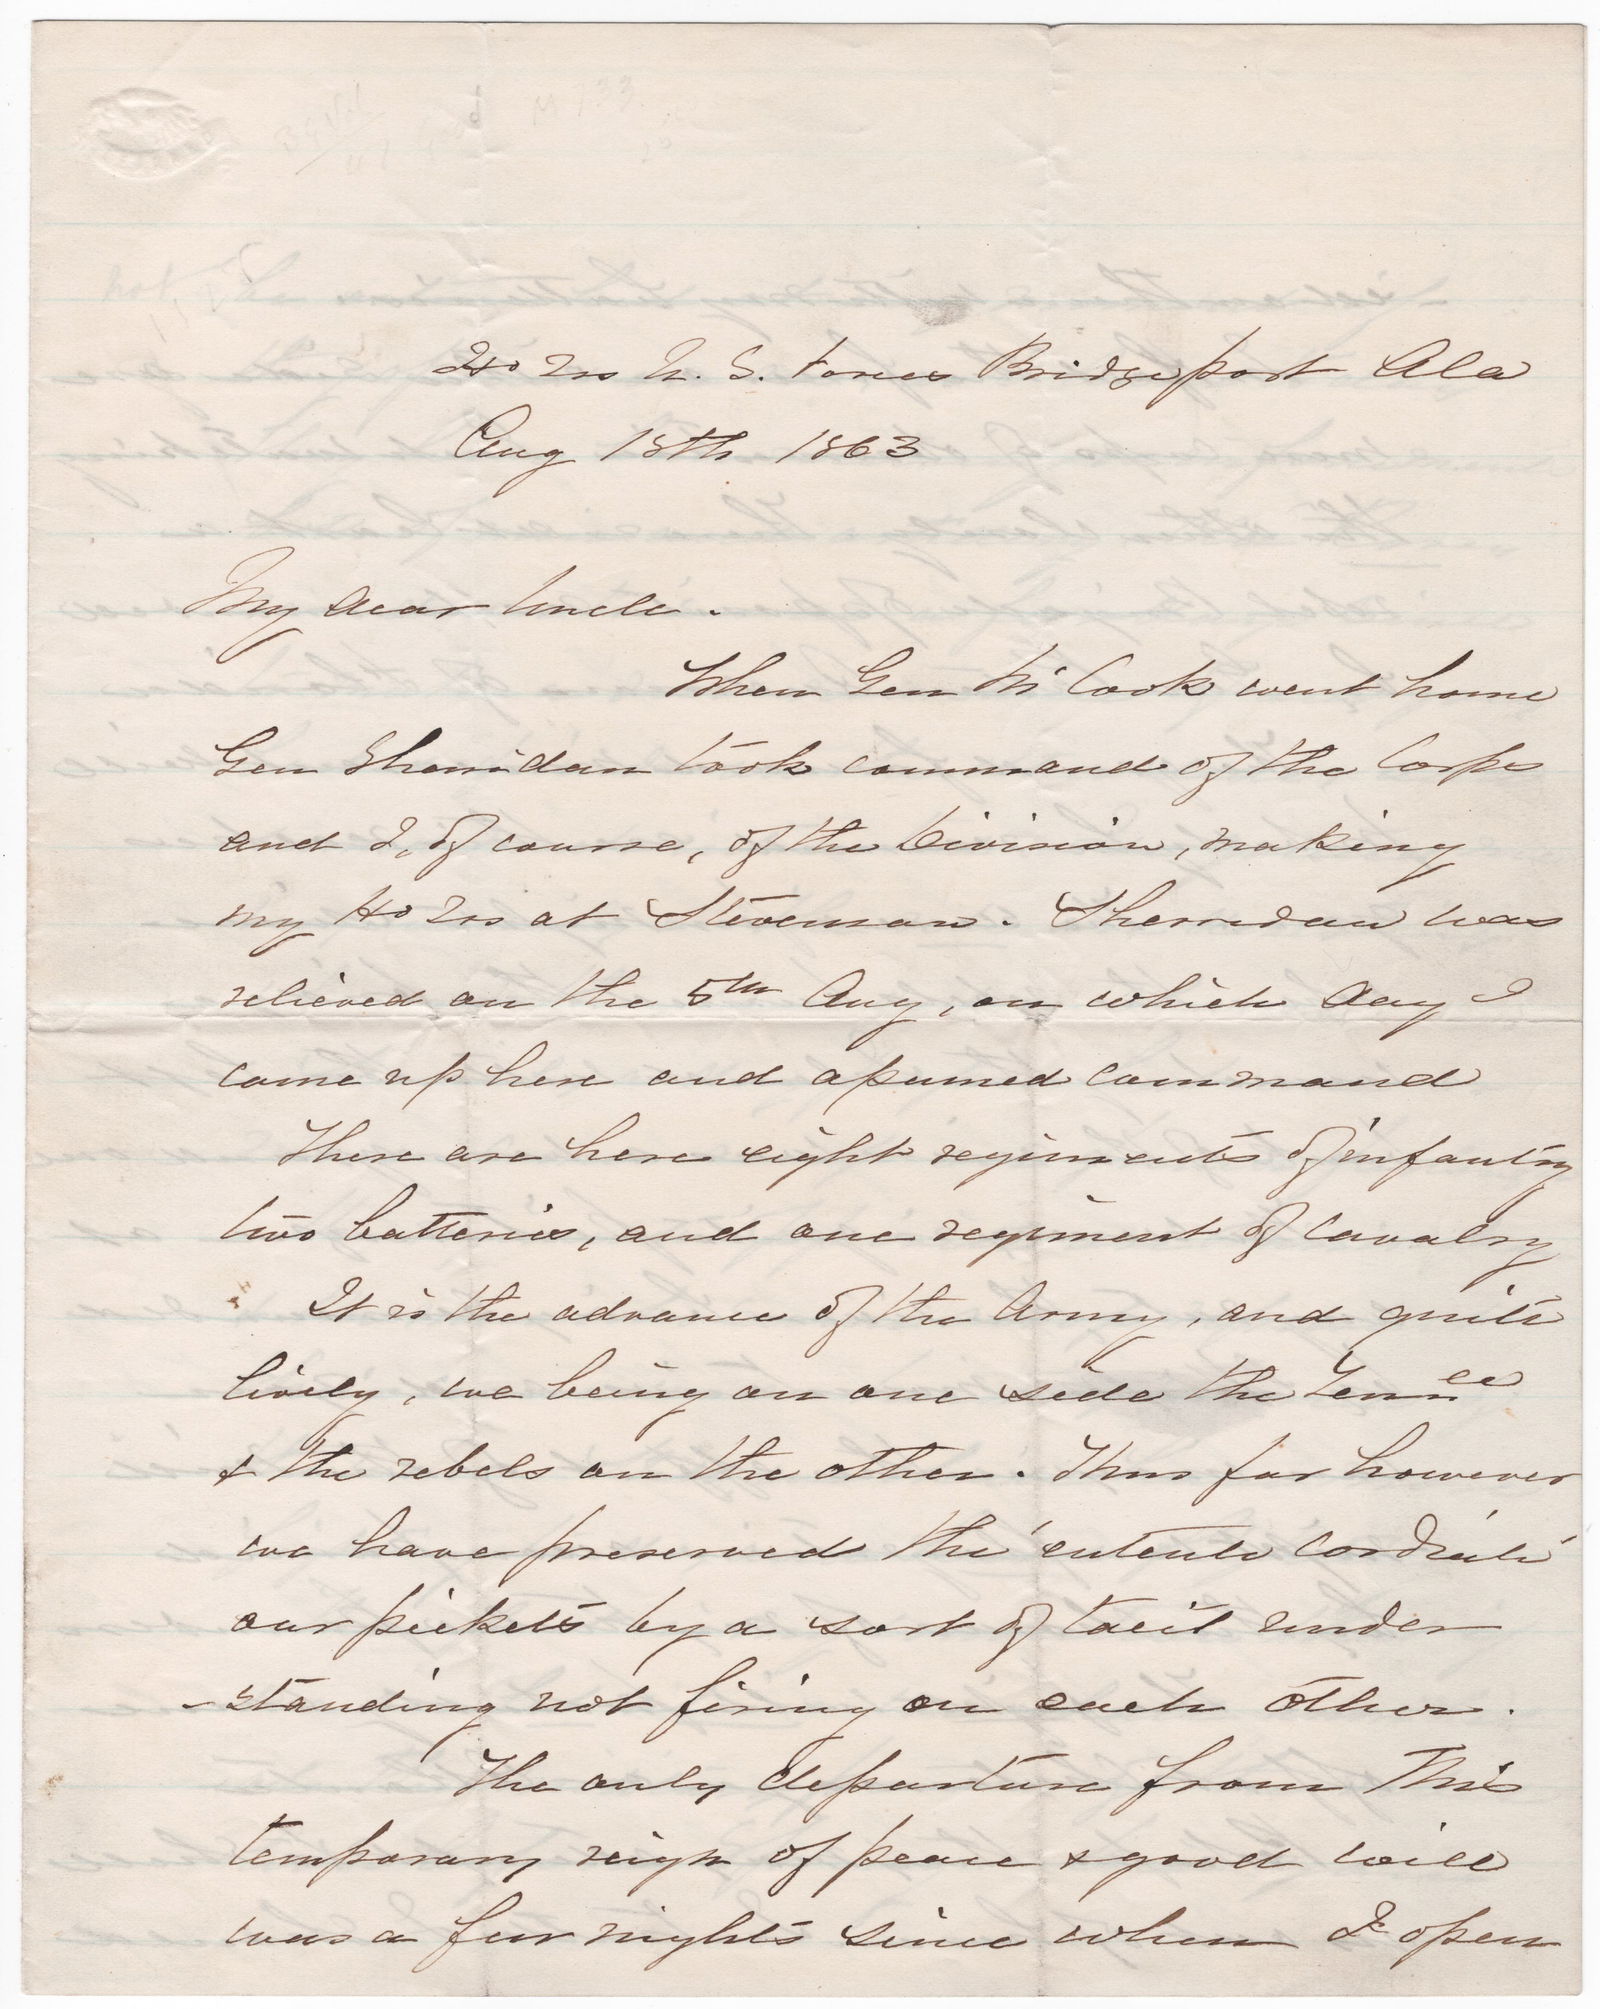 Hd Qrs U. S. Forces Bridgeport Ala
Aug 18th 1863
My dear Uncle.
When Gen McCook went home
Gen Sherridan took command of the Corps
and I, of course, of the Division, making
my Hd Qrs at Stevenson. Sherridan was
relieved on the 5th Aug, on which day I
came up here and assumed command
There are here eight regiments of infantry
two batteries, and one regiment of cavalry
It is the advance of the Army, and quite
lively, we being on one side the Tennee
& the rebels on the other. Thus far however
we have preserved the 'entente cordiale'
our pickets by a sort of tacit under
-standing not firing on each other.
The only departure from this
temporary reign of peace & good will
was a few nights since when I open